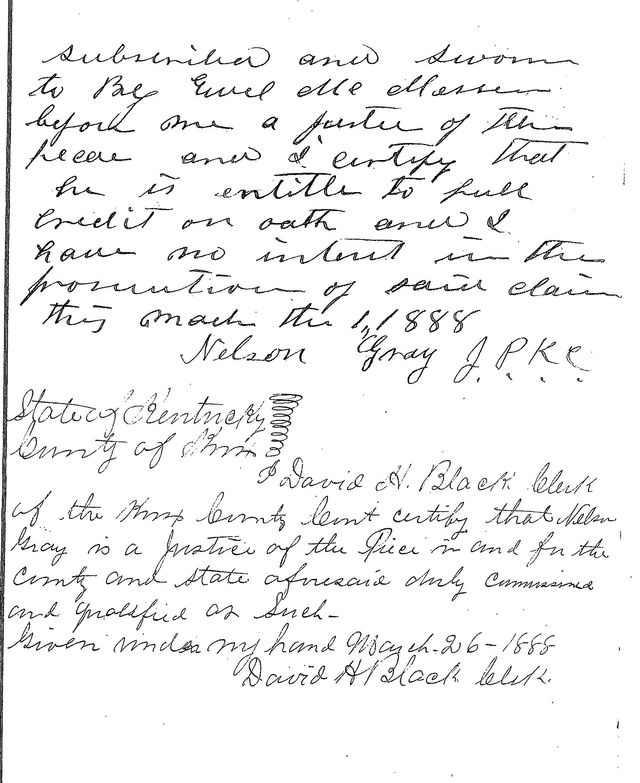 subscribed and sworn
to By Ewel Mc
before me a justic of the
peace and I certify that
he is entitle to full
credit on oath and I
have no intrest in the
prosecution of said claim
this march the 1, 1888
Nelson Gray J. P. K. C.
State of Kentucky
County of Knox
I David H. Black Clerk
of the Knox County Court certify that Nelson
Gray is a Justice of the Piece in and for the
County and State aforesaid duly Commissioned
and qualified as Such-
Given under my hand March-26-1888
David H Black Clerk.